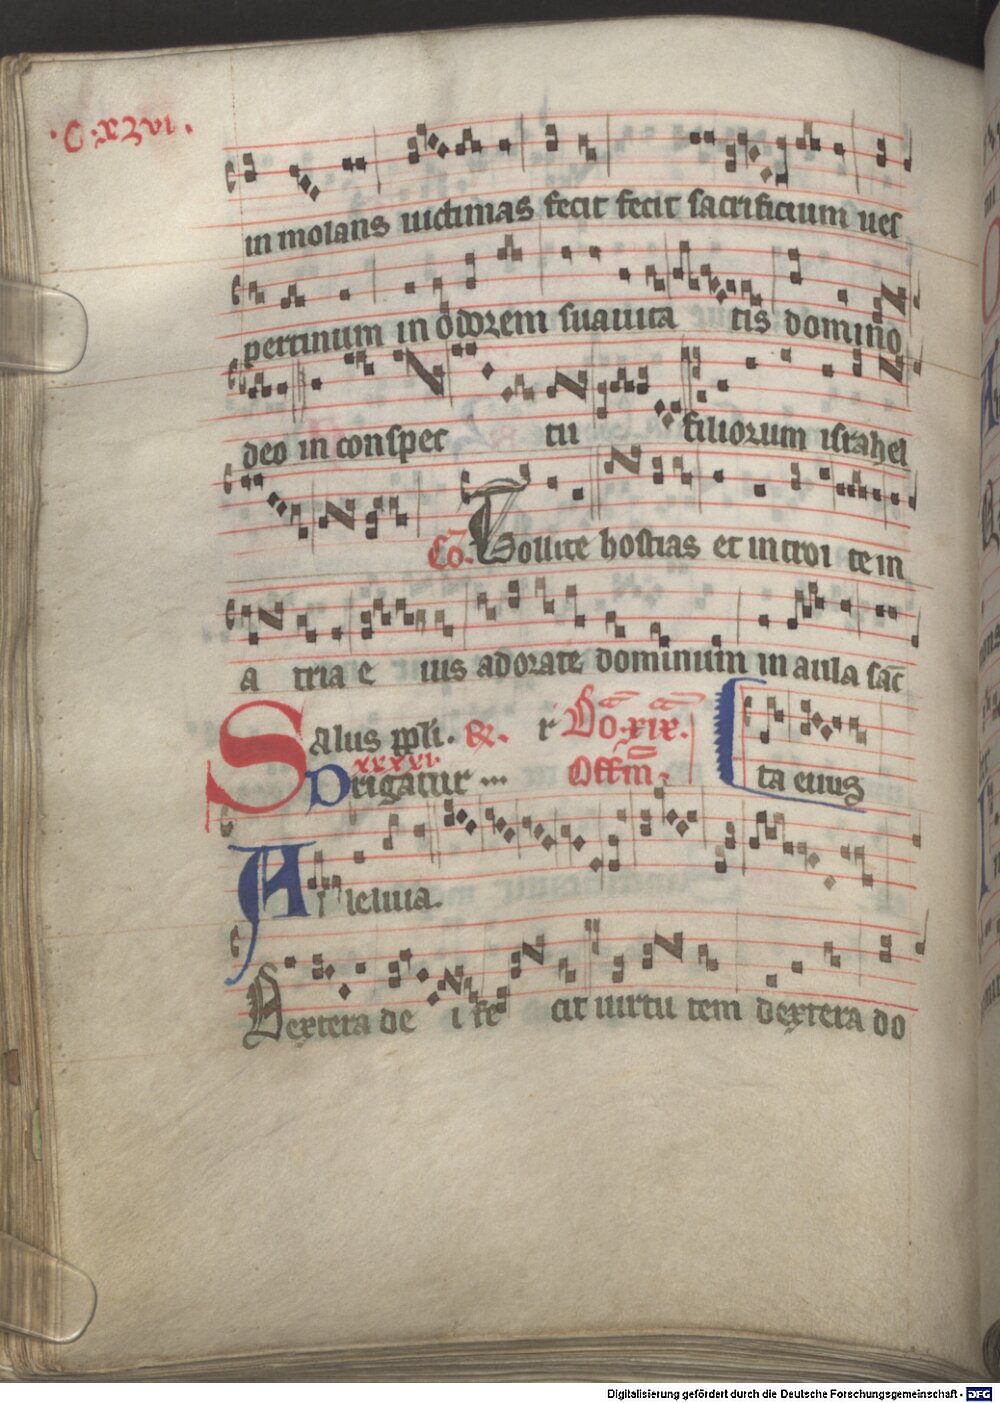 ·C·xzvi·
in molans uictimas fecit fecit sacrificium ues
pertinum in odorem suauita tis domino
deo in conspec tu filiorum israhel
Cō. Tollite hostias et introi te in
a tria e ius adorate dominum in aula sāc
Salus ppli. R. r Dō. xix.
ta eius
xxxxv
Dirigatur ... Offm̄.
Alleluia.
Dextera de i fe cit uirtu tem dextera do
Digitalisierung gefördert durch die Deutsche Forschungsgemeinschaft - DFG